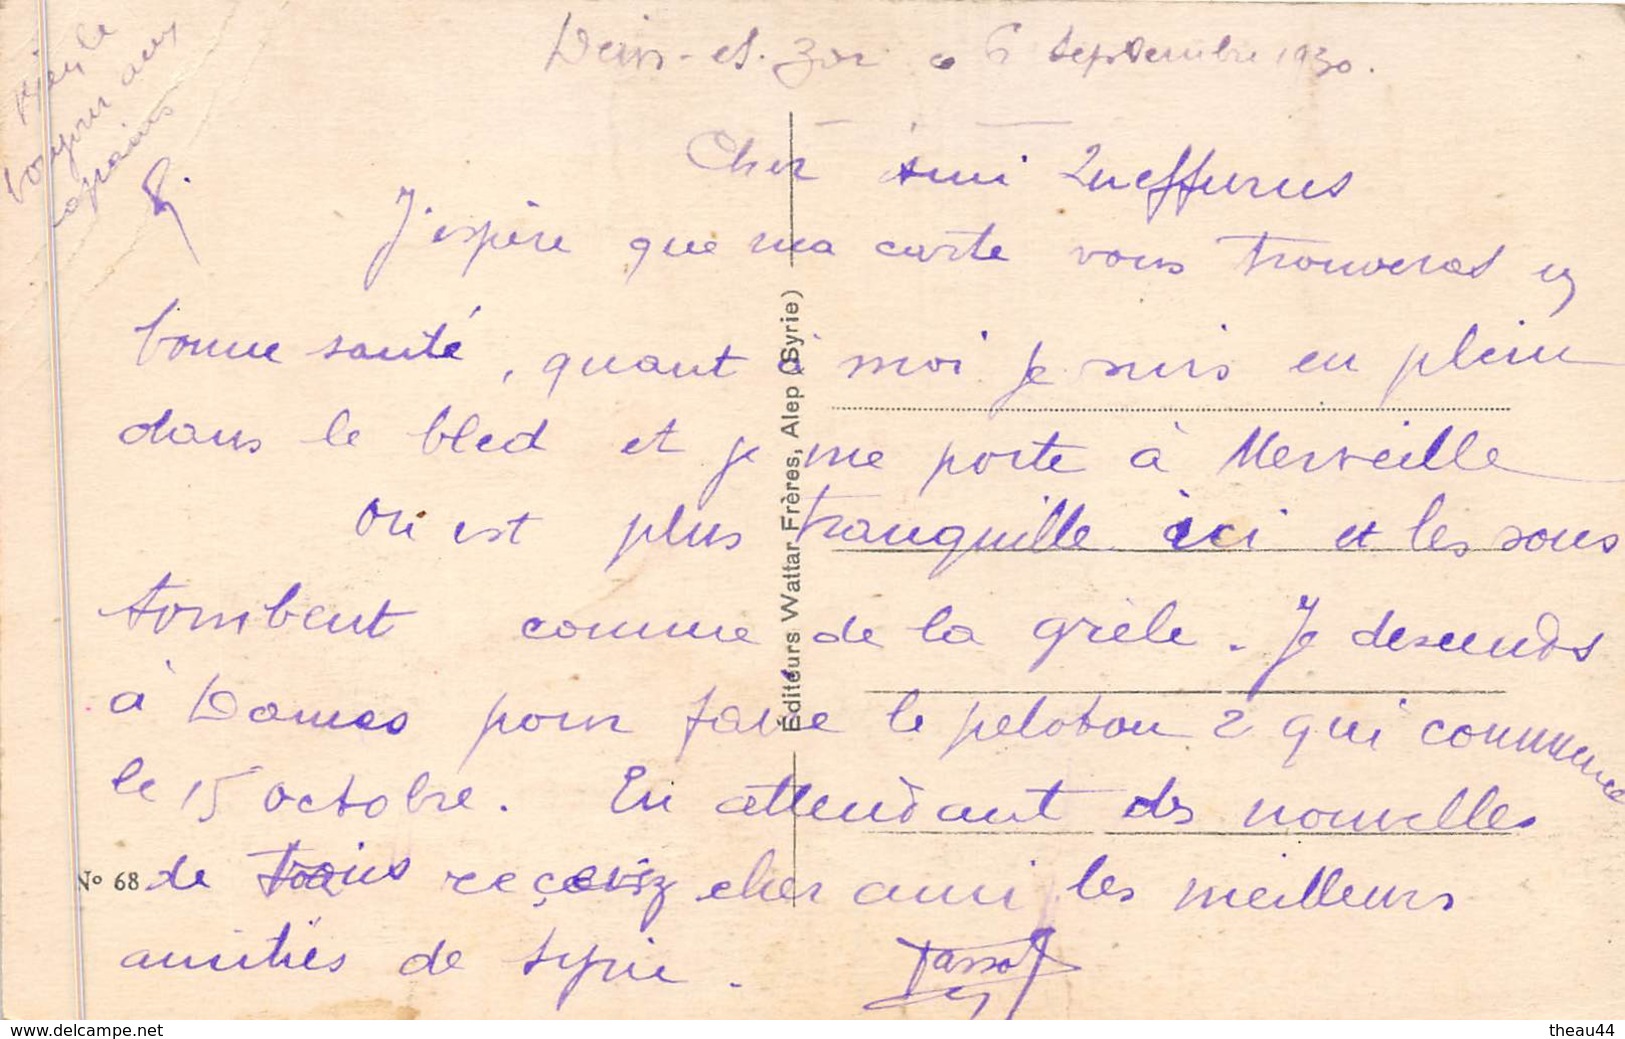 Deir-et-Zor 6 septembre 1930.
Cher ami Queffurus
J'espère que ma carte vous trouveras en
bonne santé, quant à moi je suis en plein
dans le bled et je me porte à Merveille
on est plus tranquille ici et les sous
tombent comme de la grèle. Je descends
à Damas pour faire le peloton 2 qui commence
le 15 octobre. En attendant des nouvelles
de recevez cher ami les meilleurs
amitiés de Syrie.
Bien le
bonjour aux
copains
Éditeurs Wattar Frères, Alep (Syrie)
N° 68
www.delcampe.net
theau44